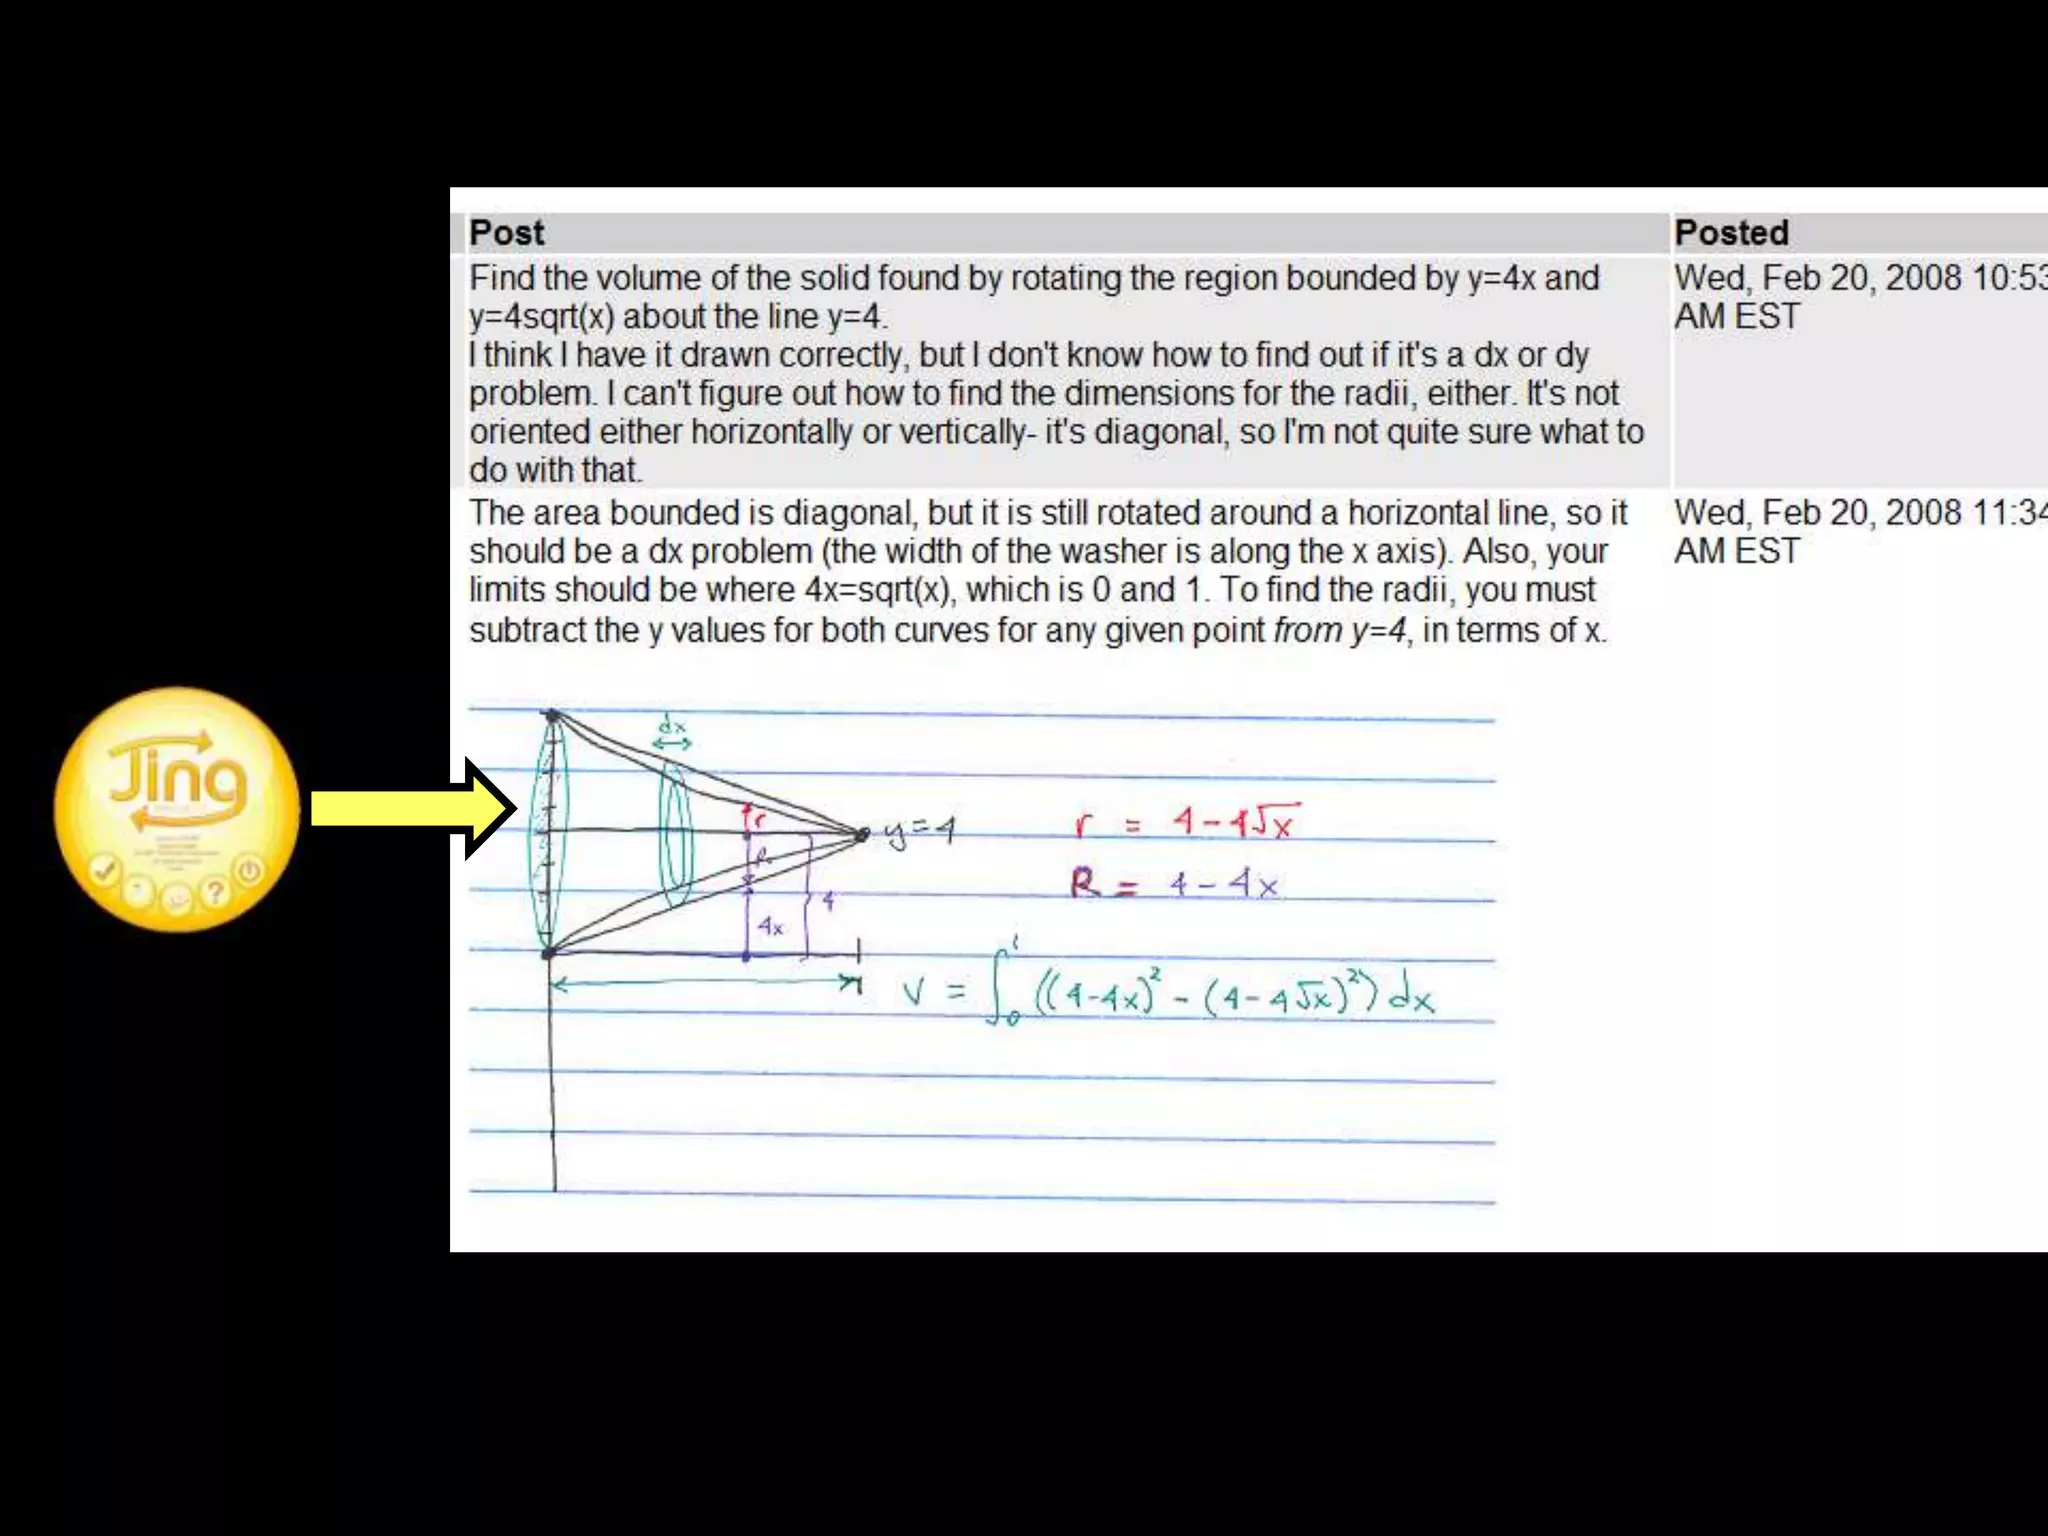 Post
Posted
Find the volume of the solid found by rotating the region bounded by y=4x and
y=4sqrt(x) about the line y=4.
I think I have it drawn correctly, but I don't know how to find out if it's a dx or dy
problem. I can't figure out how to find the dimensions for the radii, either. It's not
oriented either horizontally or vertically- it's diagonal, so I'm not quite sure what to
do with that.
Wed, Feb 20, 2008 10:53
AM EST
The area bounded is diagonal, but it is still rotated around a horizontal line, so it
should be a dx problem (the width of the washer is along the x axis). Also, your
limits should be where 4x=sqrt(x), which is 0 and 1. To find the radii, you must
subtract the y values for both curves for any given point from y=4, in terms of x.
Wed, Feb 20, 2008 11:34
AM EST
Jing
dx
r
R
y=4
4x
4
r = 4-4√x
R = 4-4x
V = ∫₀¹ ((4-4x)² - (4-4√x)²) dx
?